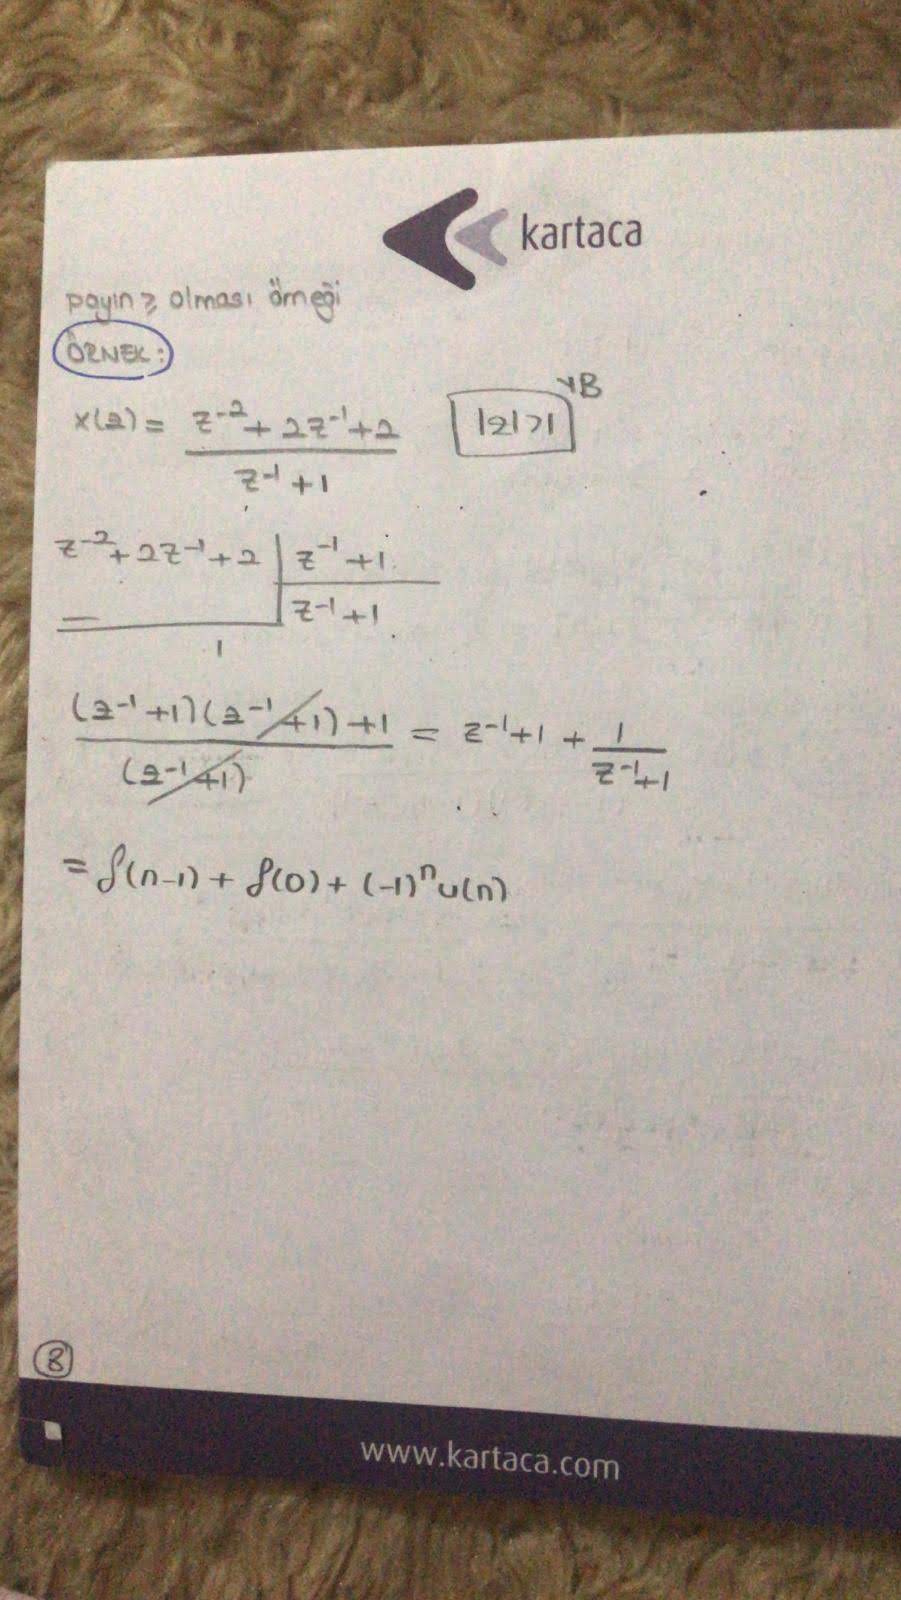 kartaca
payın ≥ olması örneği
ÖRNEK:
x(z) = (z⁻² + 2z⁻¹ + 2) / (z⁻¹ + 1) |z|>1 YB
z⁻² + 2z⁻¹ + 2 | z⁻¹ + 1
— | z⁻¹ + 1
1
((z⁻¹ + 1)(z⁻¹ + 1) + 1) / (z⁻¹ + 1) = z⁻¹ + 1 + 1 / (z⁻¹ + 1)
= δ(n-1) + δ(0) + (-1)ⁿ u(n)
8
www.kartaca.com